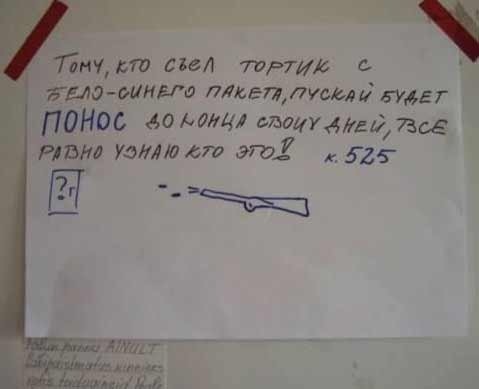 Тому, кто съел тортик с
бело-синего пакета, пускай будет
ПОНОС до конца своих дней, всё
равно узнаю кто это! к. 525
?г
AINULT